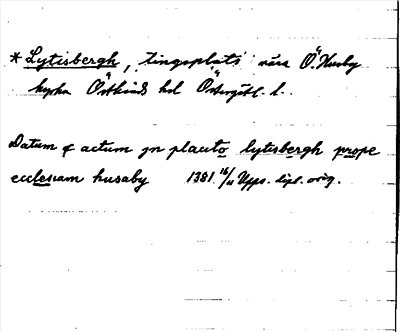 * Lytisbergh, tingsplats nära Ö. Husby
kyrka Östkinds hd Östergötl. l.
Datum & actum jn placito lytisbergh prope
ecclesiam husaby 1381 16/11 Upps. dipl. orig.